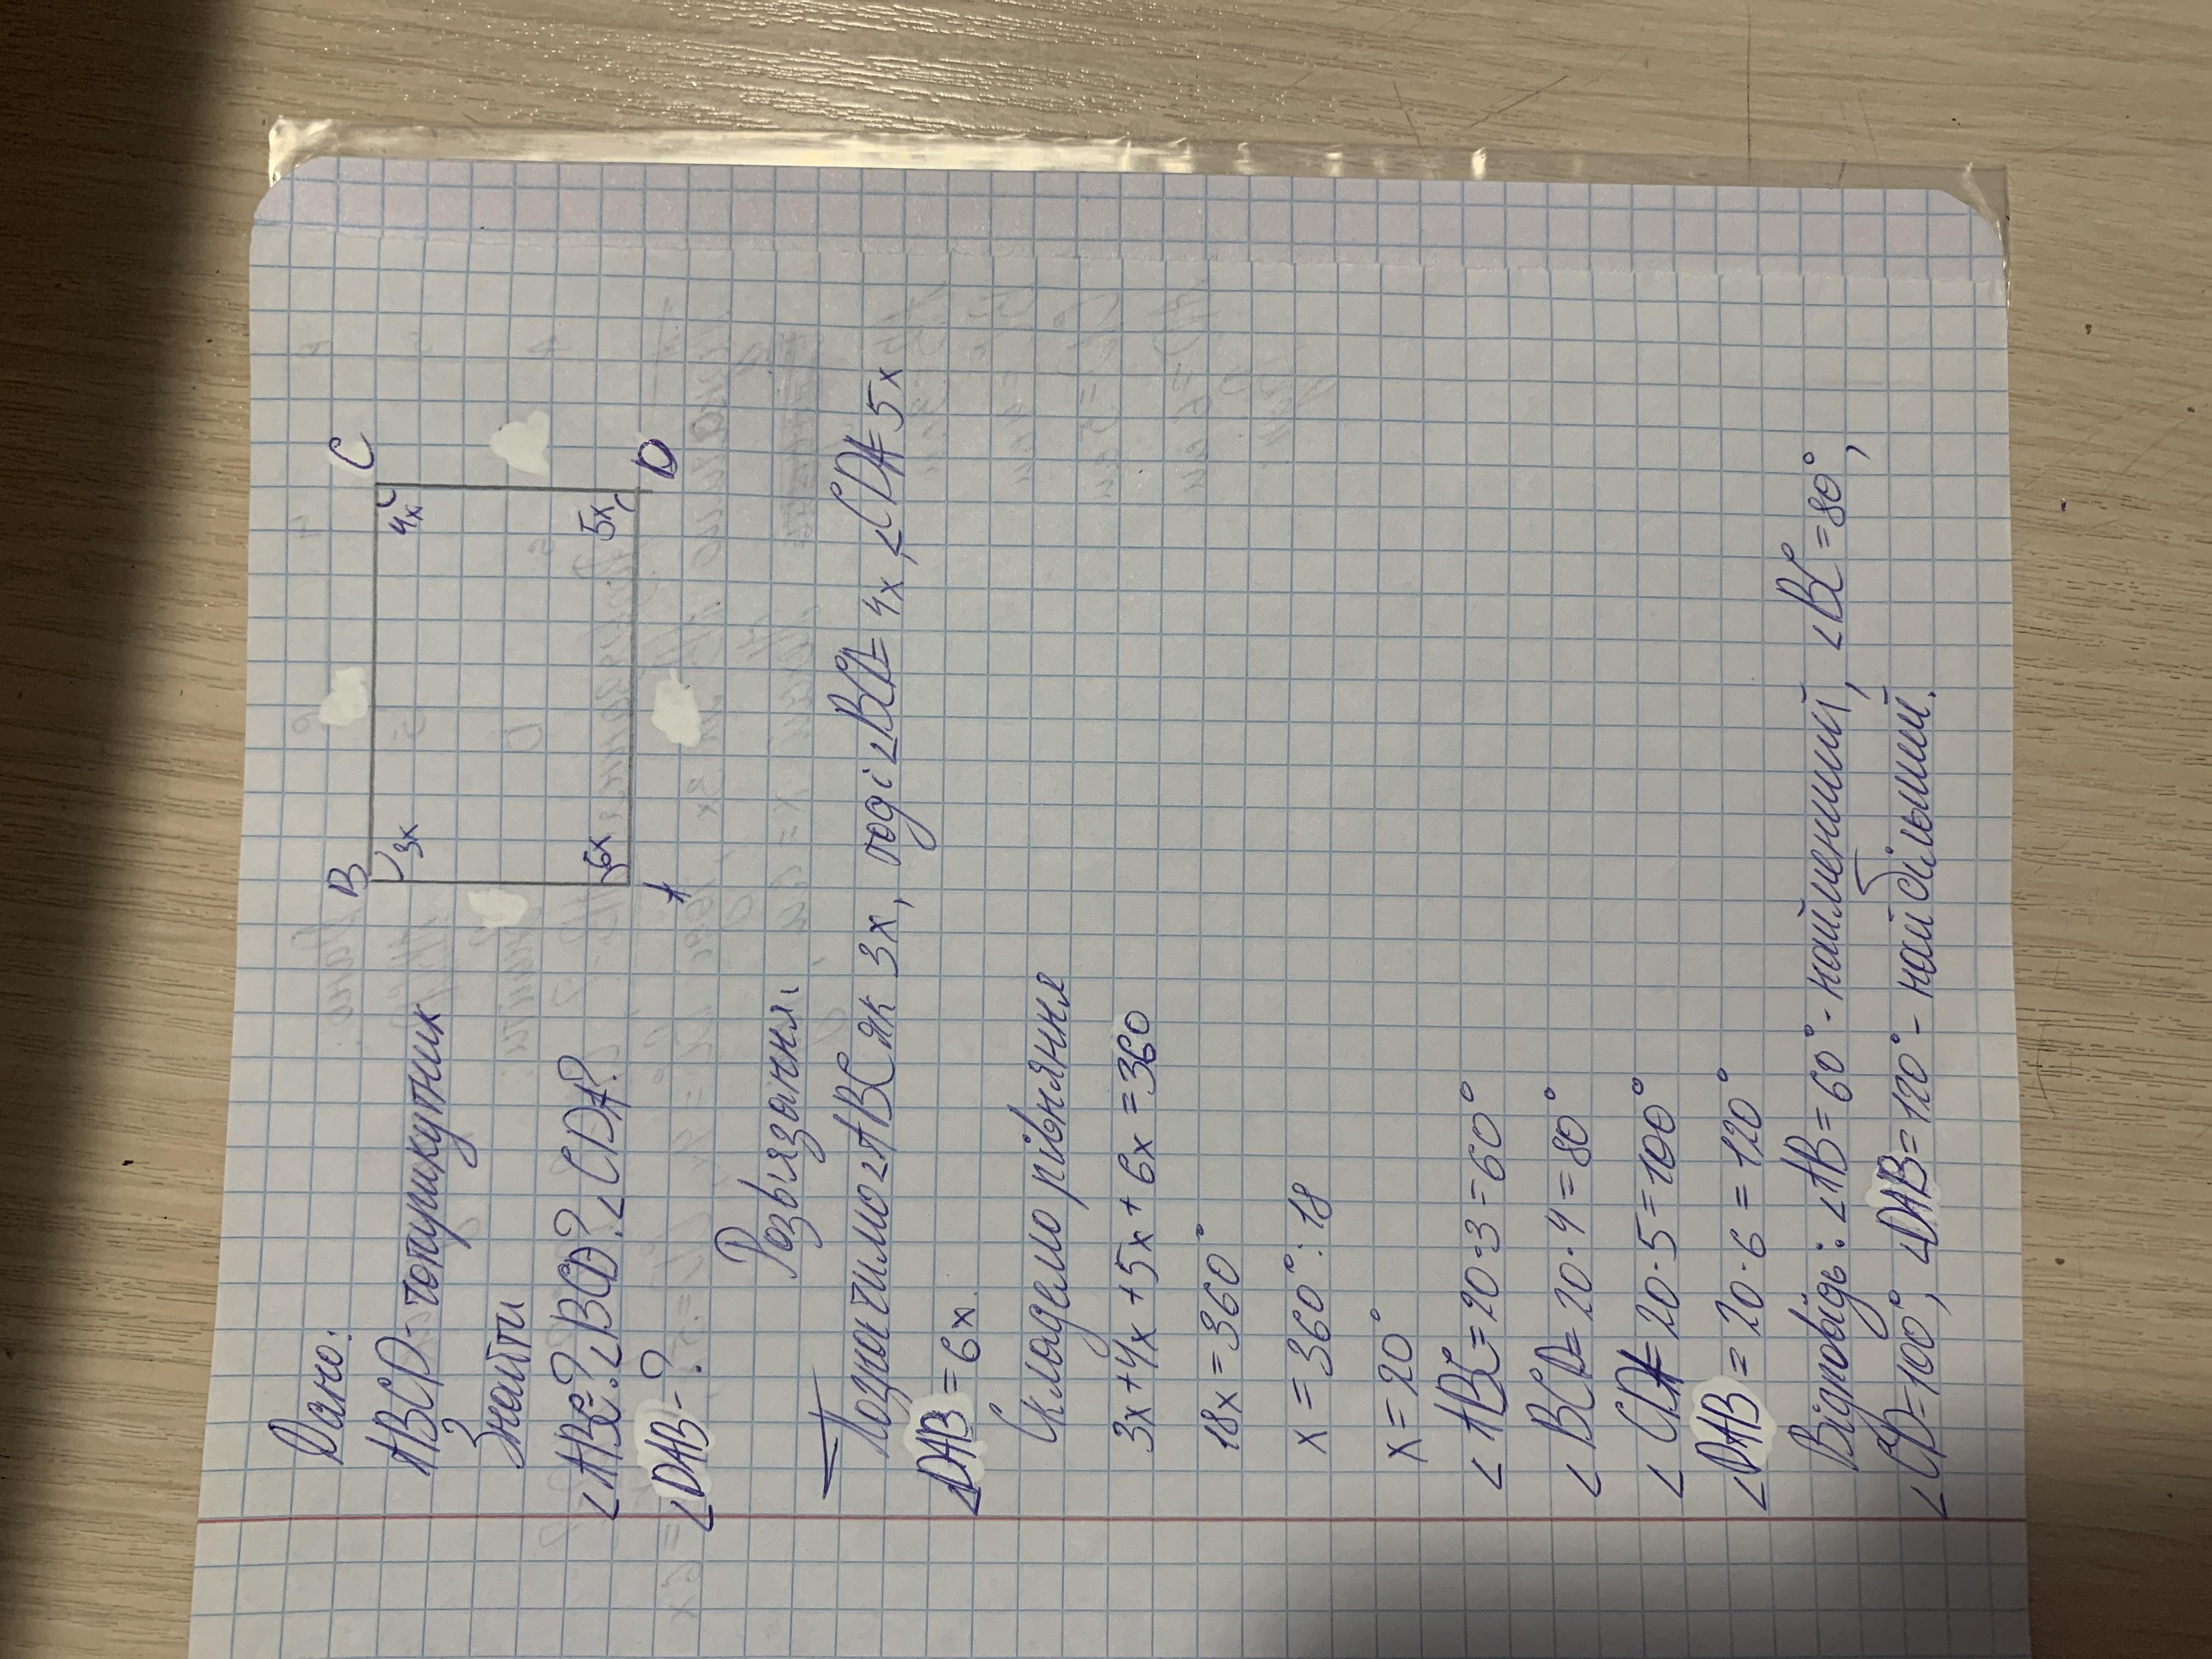 Дано:
ABCD - чотирикутник
Знайти
∠ABC? ∠BCD? ∠CDA?
∠DAB - ?
B
C
3x
4x
6x
5x
A
D
Розвязання:
Позначимо ∠ABC як 3x, тоді ∠BCD = 4x, ∠CDA = 5x
∠DAB = 6x.
Складемо рівняння
3x + 4x + 5x + 6x = 360
18x = 360°
x = 360° : 18
x = 20°
∠ABC = 20 · 3 = 60°
∠BCD = 20 · 4 = 80°
∠CDA = 20 · 5 = 100°
∠DAB = 20 · 6 = 120°
Відповідь: ∠AB = 60° - найменший, ∠BC = 80°,
∠CD = 100°, ∠DAB = 120° - найбільший.